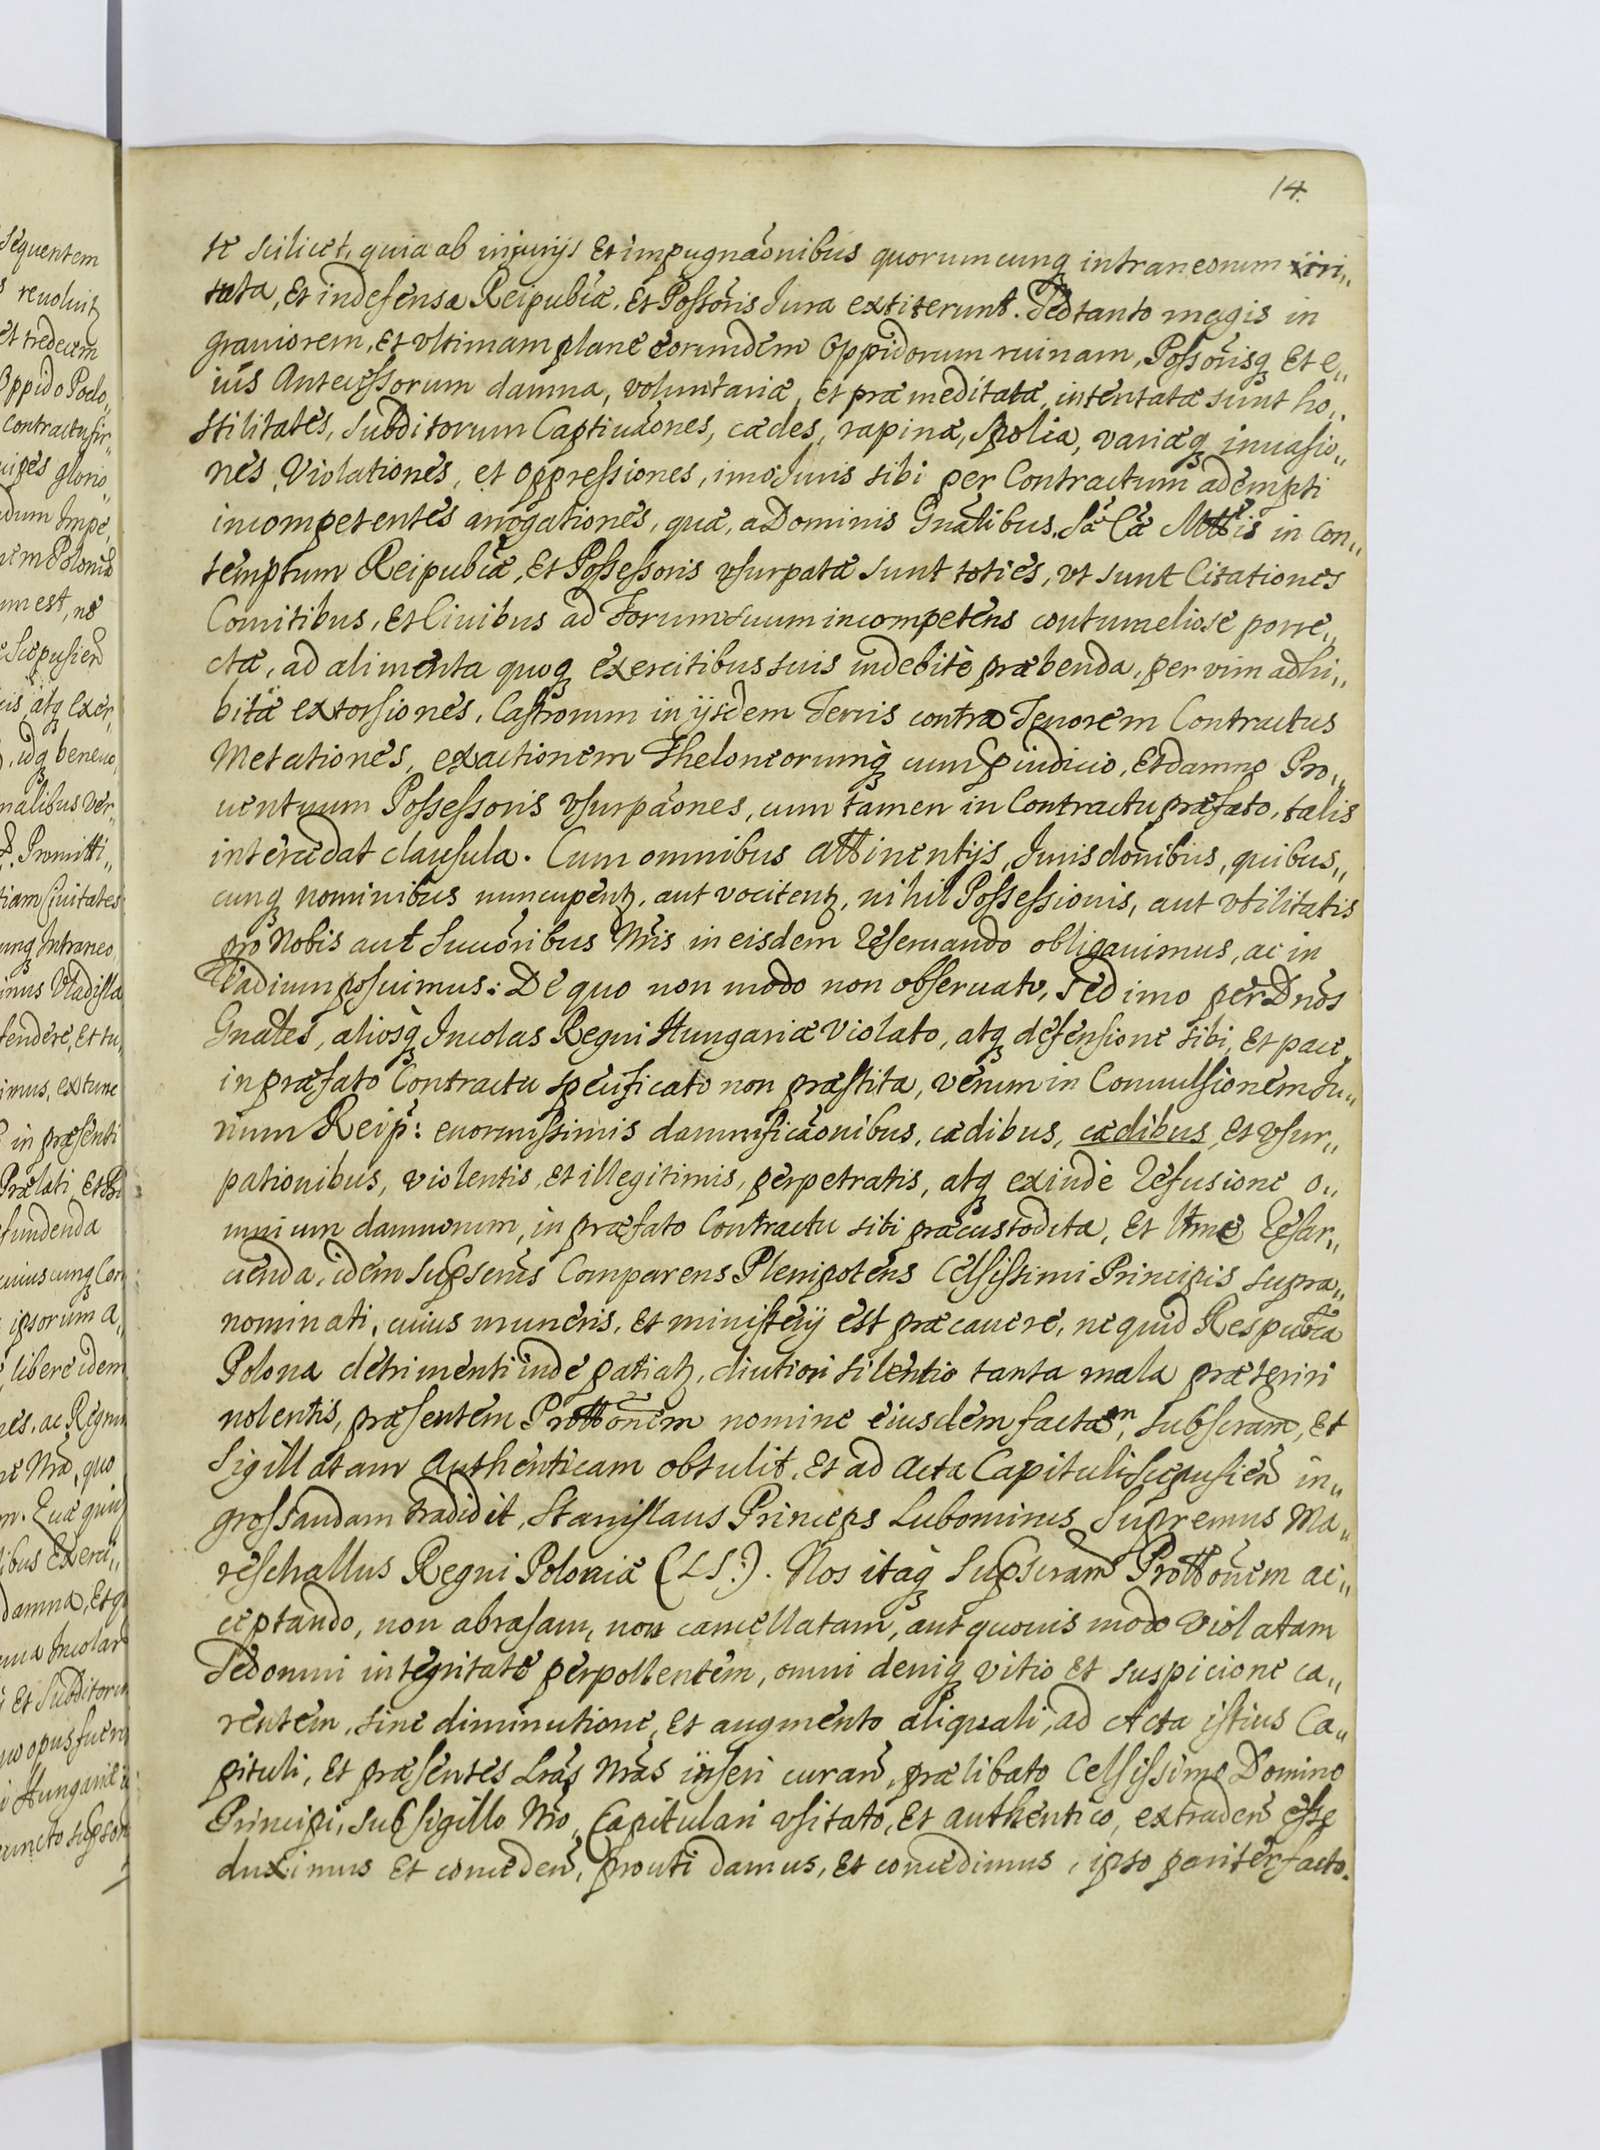 14.
te scilicet, quia ab injurijs Et impugnaõnibus quorumcunq intraneorum irri„
tata, Et indefensa Reipublicæ, Et Possõris Jura extiterunt. Sed tanto magis in
grauiorem, Et vltimam planè eorumdem Oppidorum ruinam, Possõrisq Et e„
ius Antecessorum damna, voluntariæ, Et præmeditatæ, intentatæ sunt ho„
stilitates, Subditorum Captiuaões, cædes, rapinæ, Spolia, variæq inuasio„
nes, Violationes, et oppressiones, imo Juris sibi per Contractum adempti
incompetentes arrogationes, quæ, a Dominis Gnãlibus, Sæ Cæ Mttis in con„
temptum Reipublicæ, Et Possessoris vsurpatæ sunt toties, vt sunt Citationes
Comitibus, Et Ciuibus ad Forum suum incompetens contumeliose porre„
ctæ, ad alimenta quoq exercitibus suis indebitè præbenda, per vim adhi„
bitæ extorsiones, Castrorum in ijsdem Terris contra Tenorem Contractus
Metationes, exactionem Theloneorumq cum Præiudicio, Et damno Pro„
uentuum Possessoris vsurpaões, cum tamen in Contractu præfato, talis
intercedat clausula. Cum omnibus attinentijs, Jurisdõnibus, quibus„
cunq nominibus nuncupentq, aut vocitentq, nihil Possessionis, aut vtilitatis
pro Nobis aut Succõribus Nris in eisdem reseruando obligauimus, ac in
Vadium posuimus: De quo non modo non obseruato, Sed imo per Dnõs
Gnãles, aliosq Incolas Regni Hungariæ violato, atq defensione sibi, Et pace
in præfato Contractu specificato non præstita, verum in Conuulsionem Ju„
rium Reip: enormissimis damnificaõnibus, cædibus, cædibus, Et vsur„
pationibus, violentis, Et illegitimis, perpetratis, atq exinde refusione o„
mnium damnorum, in præfato Contractu sibi præcustodita, Et ltme resar„
cienda, idem Supscrus Comparens Plenipotens Celsissimi Principis supra„
nominati, cuius muneris, Et ministerij est præcauere, ne quid Respublica
Polona detrimenti inde patiatq, diutiori silentio tanta mala præteriri
nolentis, præsentem Prottõnem nomine eiusdem factam, subscram, Et
Sigillatam Authenticam obtulit, Et ad Acta Capituli Scepusien in„
grossandam tradidit, Stanislaus Princeps Lubomirus Supremus Ma„
reschallus Regni Poloniæ (LS.). Nos itaq Supscram Prottõnem ac„
ceptando, non abrasam, non cancellatam, aut quouis modo violatam
Sed omni integritate perpollentem, omni deniq vitio Et suspicione ca„
rentem, sine diminutione, Et augmento aliquali, ad Acta istius Ca„
pituli, Et præsentes Lras Nras inseri curan, prælibato Celsissimo Domino
Principi, sub sigillo Nro, Capitulari vsitato, Et authentico, extraden esse
duximus Et conceden, prouti damus, Et concedimus, ipso pariter facto.